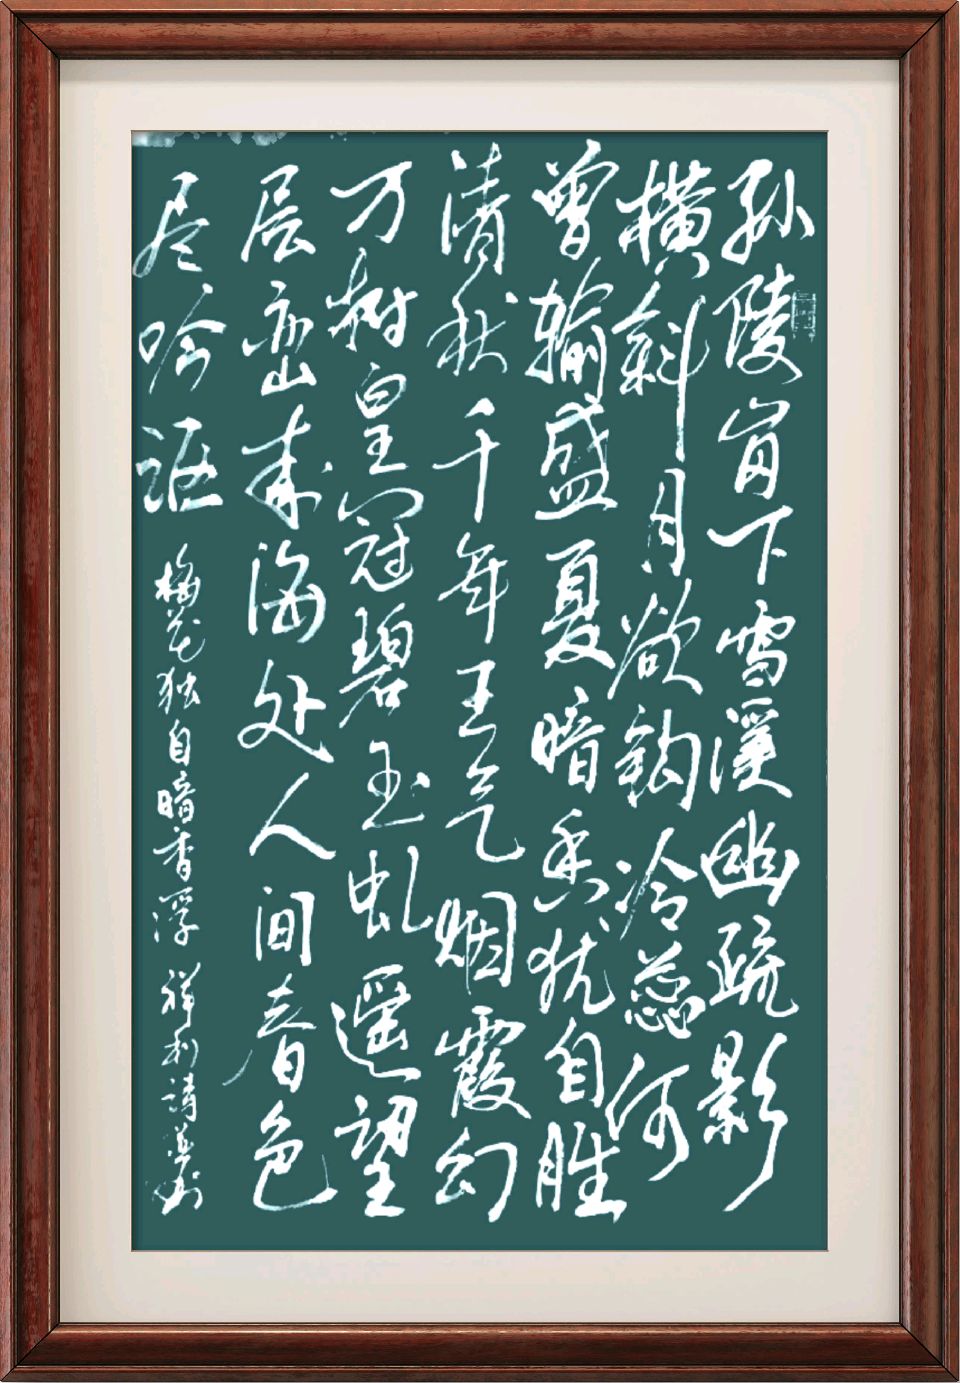 孙陵岗下雪溪幽疏影
横斜月欲钩冷蕊何
曾输盛夏暗香犹自胜
清秋千年王气烟霞幻
万树皇冠碧玉虬遥望
层峦寿海处人间春色
尽吟讴
梅花独自暗香浮 祥利诗